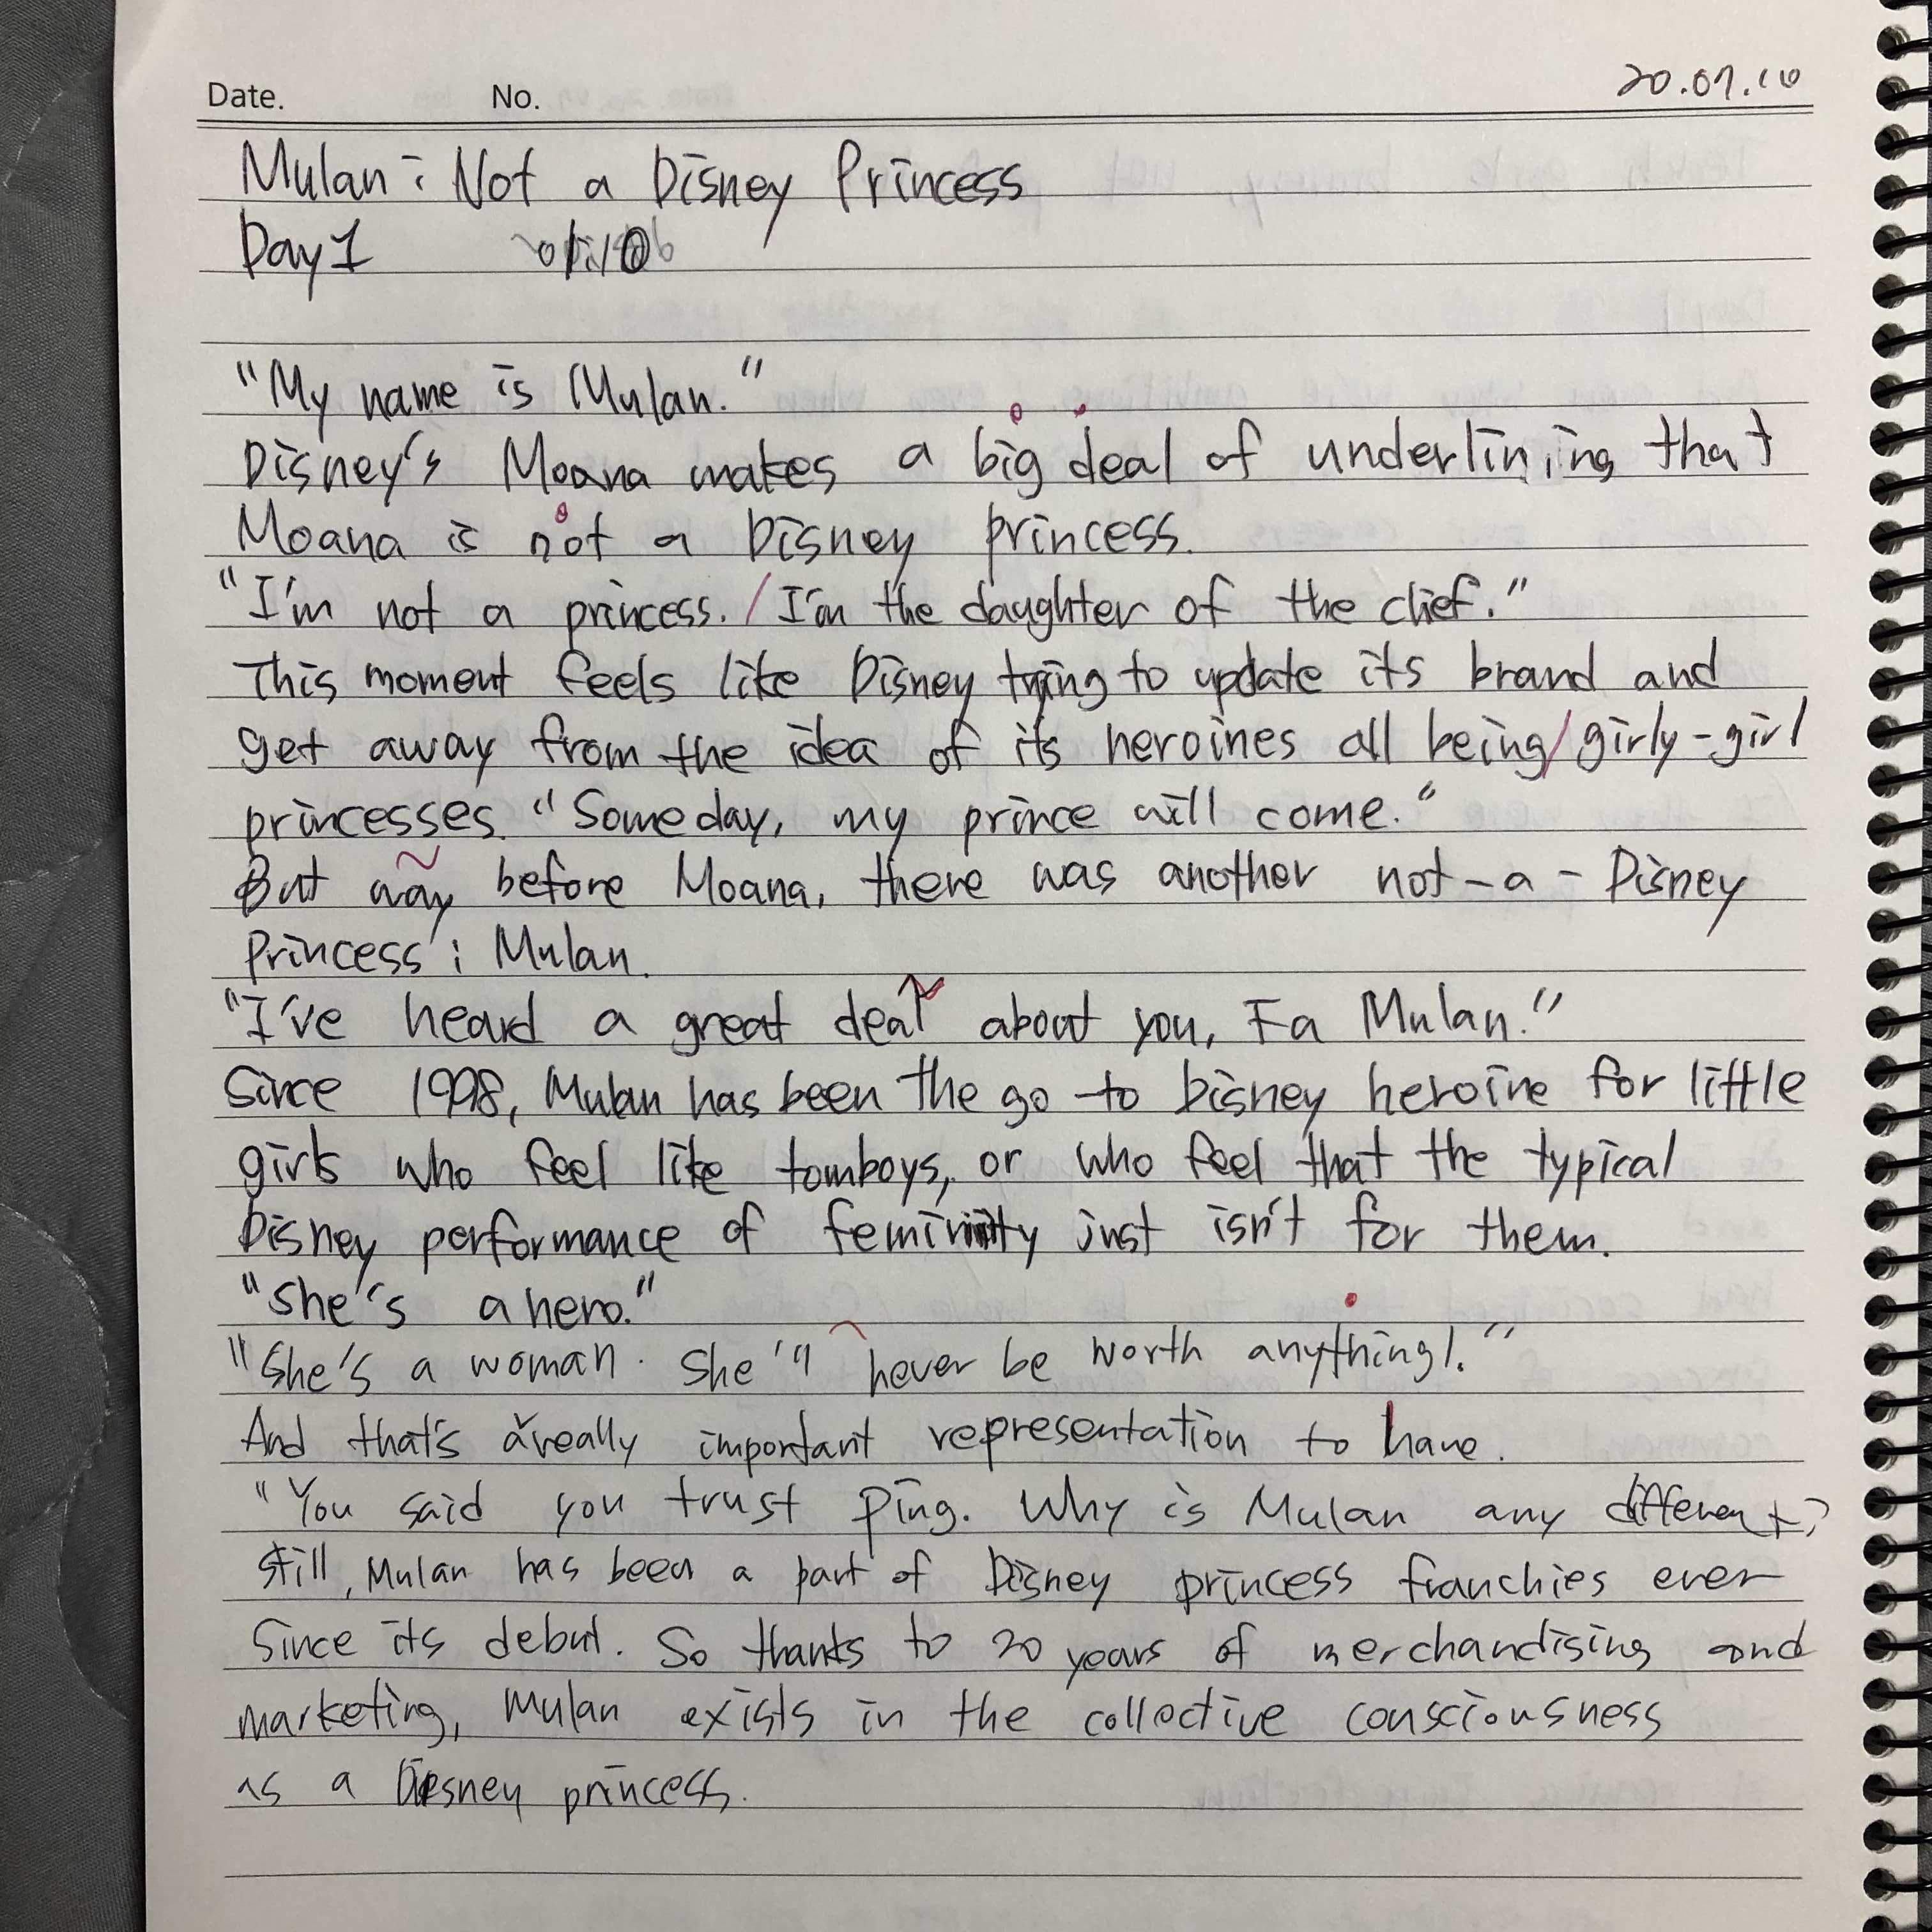 Date. No. 20.07.10
Mulan : Not a Disney Princess
Day 1
"My name is Mulan."
Disney's Moana makes a big deal of underlining that
Moana is not a Disney princess.
"I'm not a princess. / I'm the daughter of the chief."
This moment feels like Disney trying to update its brand and
get away from the idea of its heroines all being / girly-girl
princesses. "Someday, my prince will come."
But way before Moana, there was another not-a-Disney
Princess : Mulan.
"I've heard a great deal about you, Fa Mulan."
Since 1998, Mulan has been the go to Disney heroine for little
girls who feel like tomboys, or who feel that the typical
Disney performance of femininity just isn't for them.
"She's a hero."
"She's a woman. She'll never be worth anything!."
And that's a really important representation to have.
"You said you trust Ping. Why is Mulan any different?
Still, Mulan has been a part of Disney princess franchies ever
since its debut. So thanks to 20 years of merchandising and
marketing, Mulan exists in the collective consciousness
as a Disney princess.